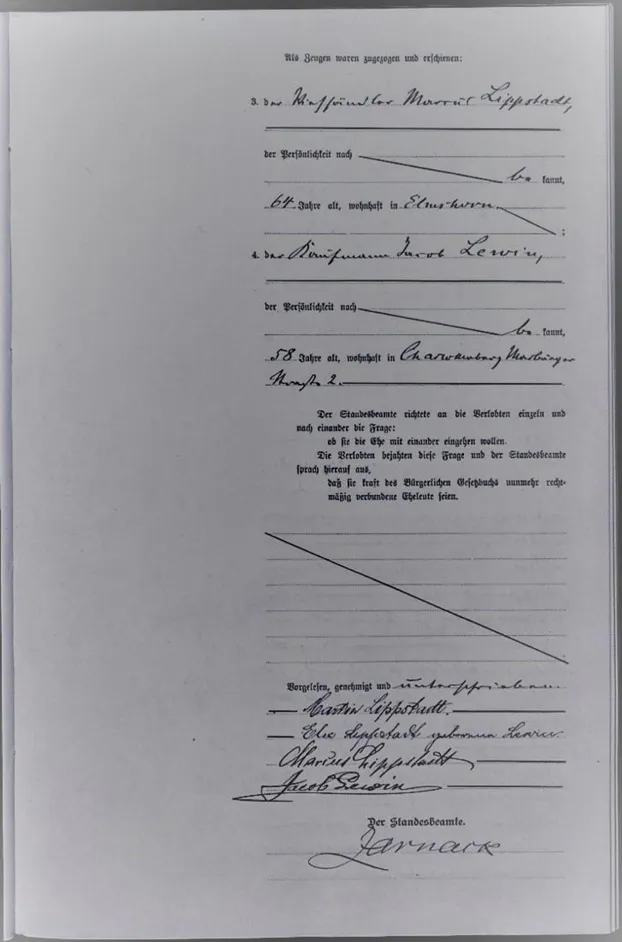 Als Zeugen waren zugezogen und erschienen:
3. der Viehhändler Marcus Lippstadt,
der Persönlichkeit nach
be kannt,
64 Jahre alt, wohnhaft in Elmshorn
;
4. der Kaufmann Jacob Lewin,
der Persönlichkeit nach
be kannt,
58 Jahre alt, wohnhaft in Charlottenburg Marburger
Straße 2.
Der Standesbeamte richtete an die Verlobten einzeln und
nach einander die Frage:
ob sie die Ehe mit einander eingehen wollen.
Die Verlobten bejahten diese Frage und der Standesbeamte
sprach hierauf aus,
daß sie kraft des Bürgerlichen Gesetzbuchs nunmehr recht-
mäßig verbundene Eheleute seien.
Vorgelesen, genehmigt und unterschrieben.
Martin Lippstadt.
Else Lippstadt geborene Lewin.
Marcus Lippstadt
Jacob Lewin
Der Standesbeamte.
Zarnack